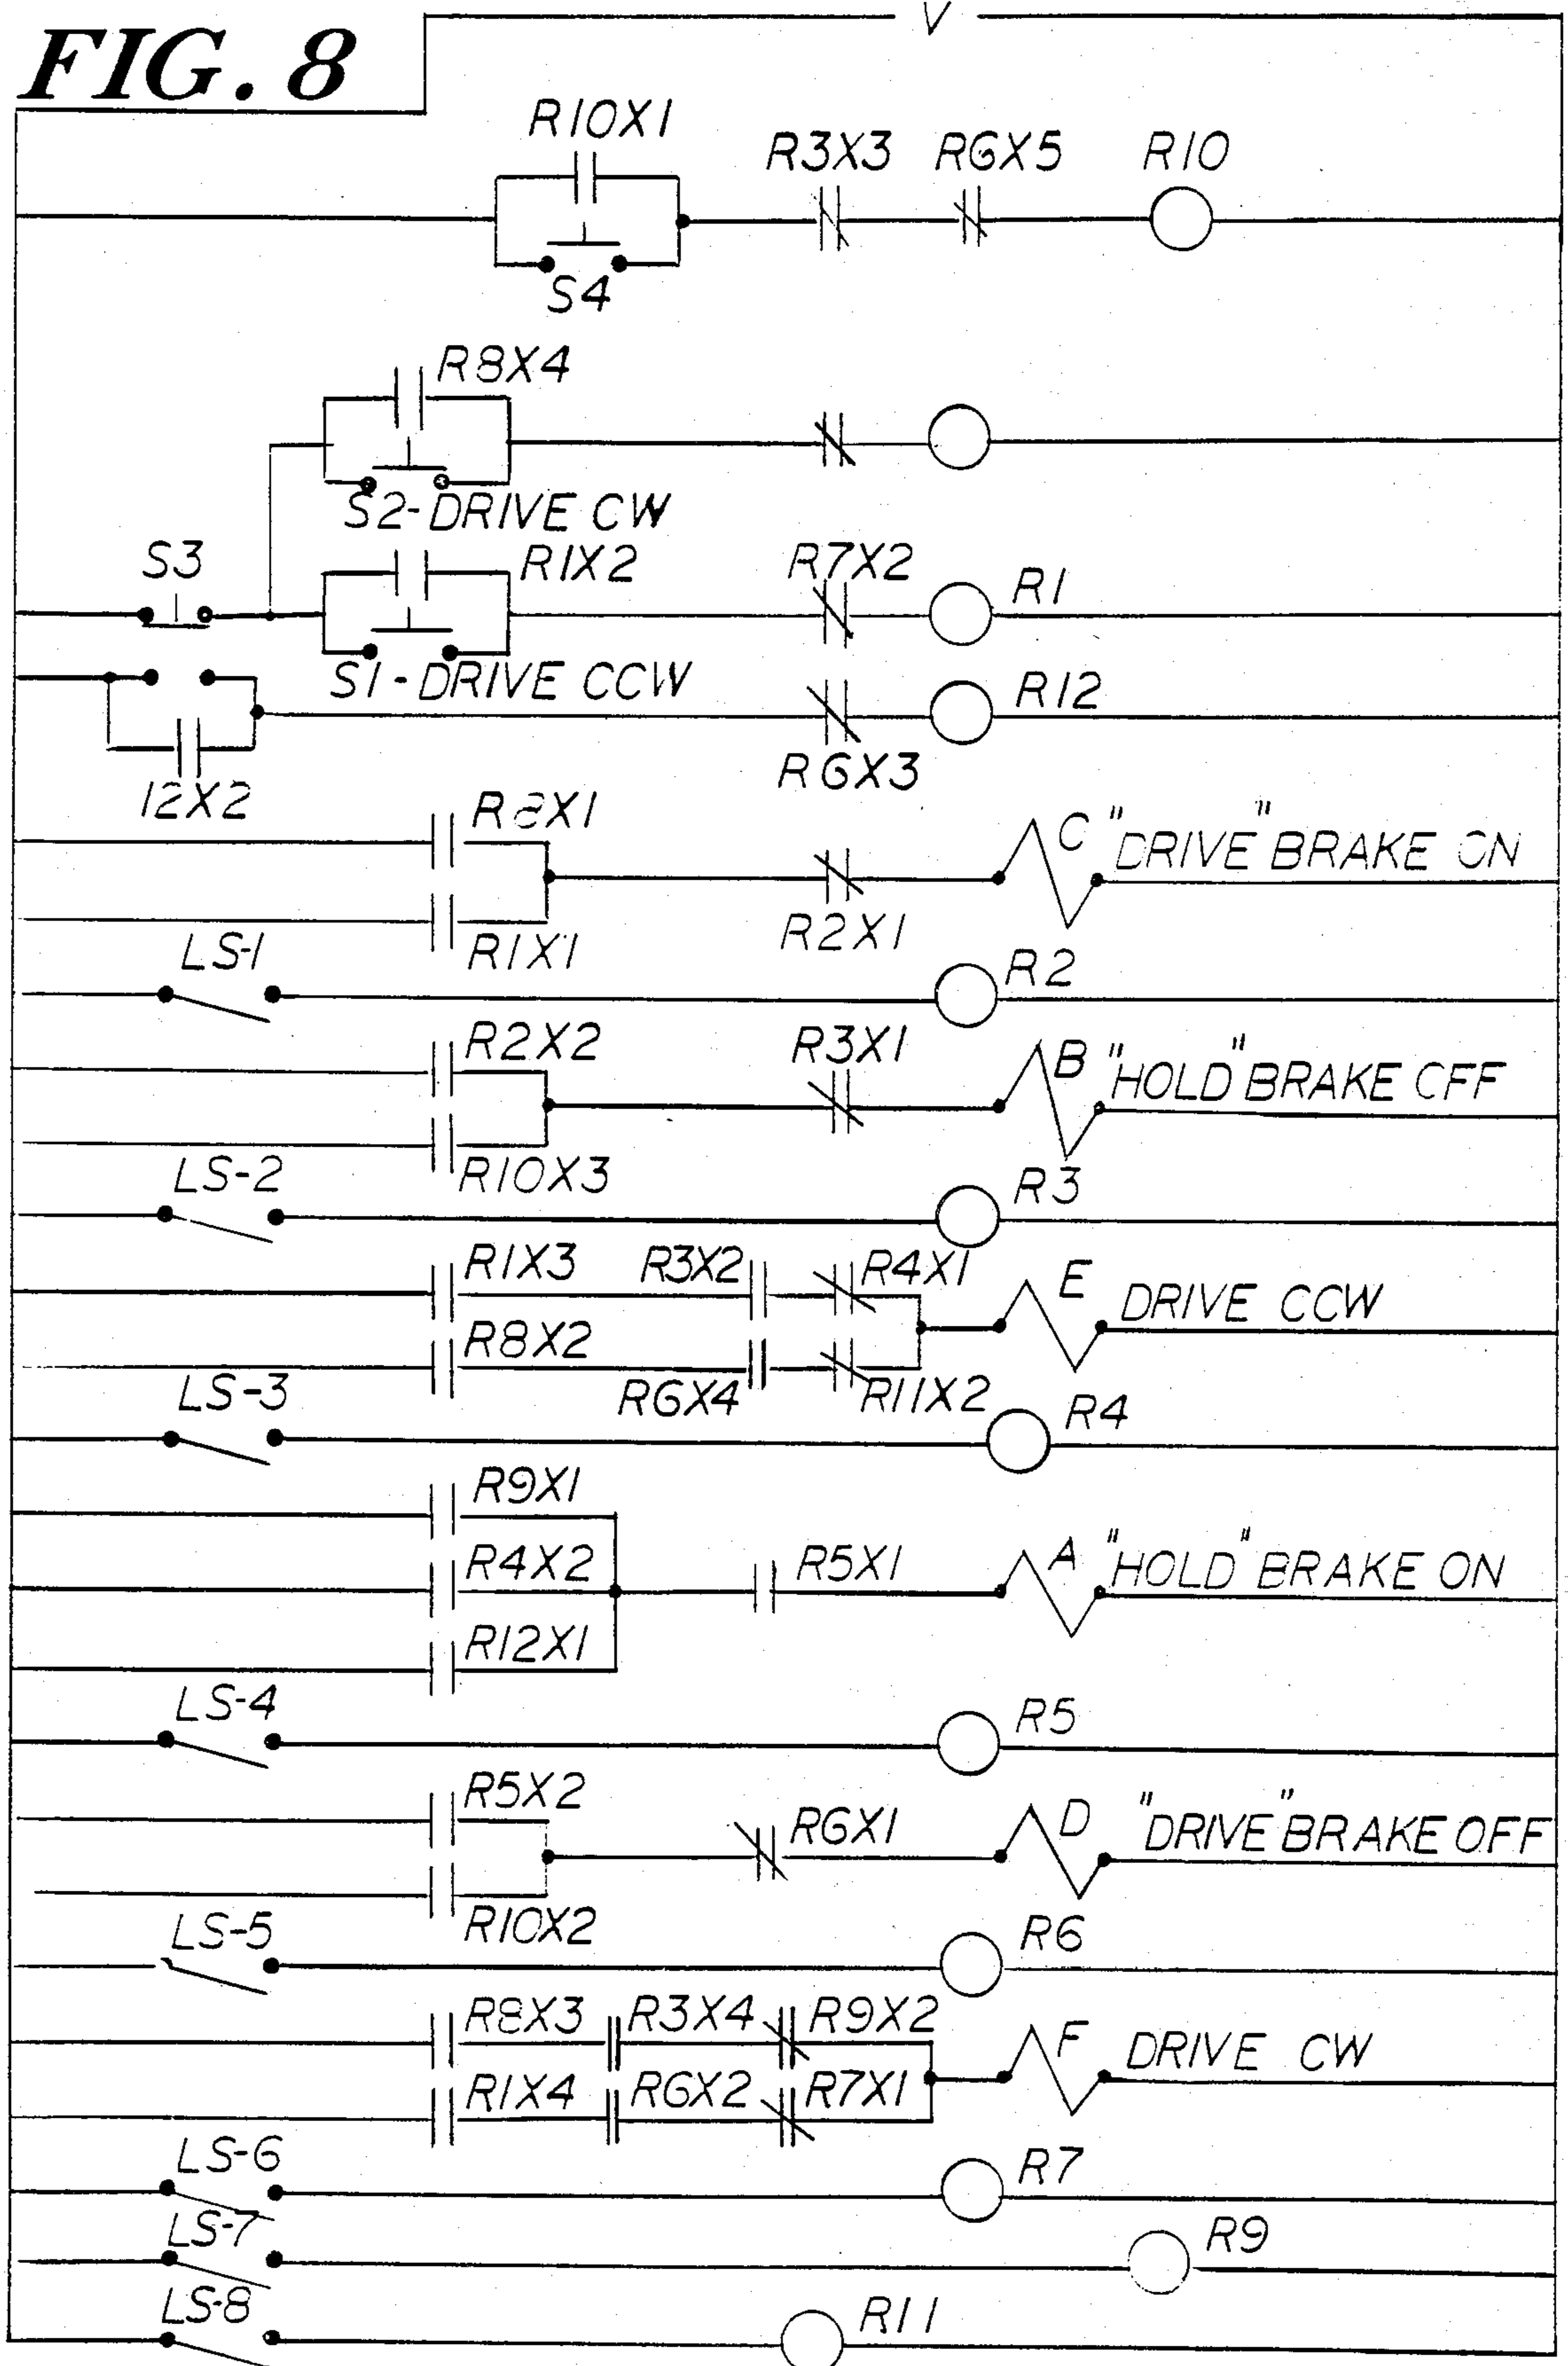 V
FIG. 8
R10X1
R3X3 R6X5 R10
S4
R8X4
S2-DRIVE CW
S3 R1X2 R7X2 R1
S1-DRIVE CCW R12
R6X3
12X2
R8X1 C "DRIVE" BRAKE ON
R2X1
LS-1 R1X1 R2
R2X2 R3X1 B "HOLD" BRAKE OFF
LS-2 R10X3 R3
R1X3 R3X2 R4X1 E DRIVE CCW
R8X2
LS-3 R6X4 R11X2 R4
R9X1
R4X2 R5X1 A "HOLD" BRAKE ON
R12X1
LS-4 R5
R5X2 R6X1 D "DRIVE" BRAKE OFF
LS-5 R10X2 R6
R8X3 R3X4 R9X2 F DRIVE CW
R1X4 R6X2 R7X1
LS-6 R7
LS-7 R9
LS-8 R11